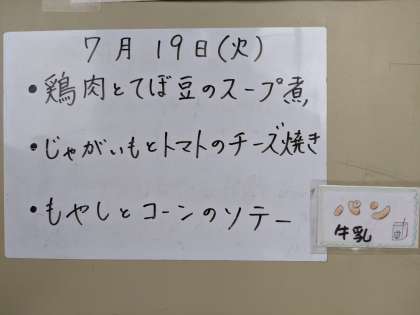 7月19日(火)
・鶏肉とてぼ豆のスープ煮
・じゃがいもとトマトのチーズ焼き
・もやしとコーンのソテー
パン
牛乳